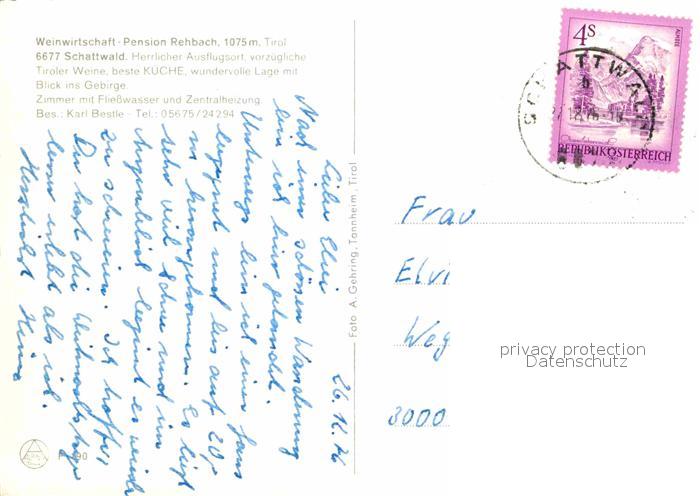 Weinwirtschaft - Pension Rehbach, 1075 m, Tirol
6677 Schattwald. Herrlicher Ausflugsort, vorzügliche
Tiroler Weine, beste KÜCHE, wundervolle Lage mit
Blick ins Gebirge.
Zimmer mit Fließwasser und Zentralheizung.
Bes.: Karl Bestle - Tel.: 05675/24294
26.12.76
Liebe Elvi
Nach einer schönen Wanderung
bin ich hier gelandet.
Unterwegs bin ich einer Gams
begegnet und bis auf 20
m herangekommen. Es liegt
sehr viel Schnee und im
Augenblick beginnt es wieder
zu schneien. Ich hoffe,
Du hast die Weihnachtstage
erlebt als ich.
Herzlichst Heinz
Foto A. Gehring, Tannheim, Tirol
4S
ALMSEE
REPUBLIK ÖSTERREICH
SCHATTWALD
Frau
Elvi
Weg
3000
privacy protection
Datenschutz